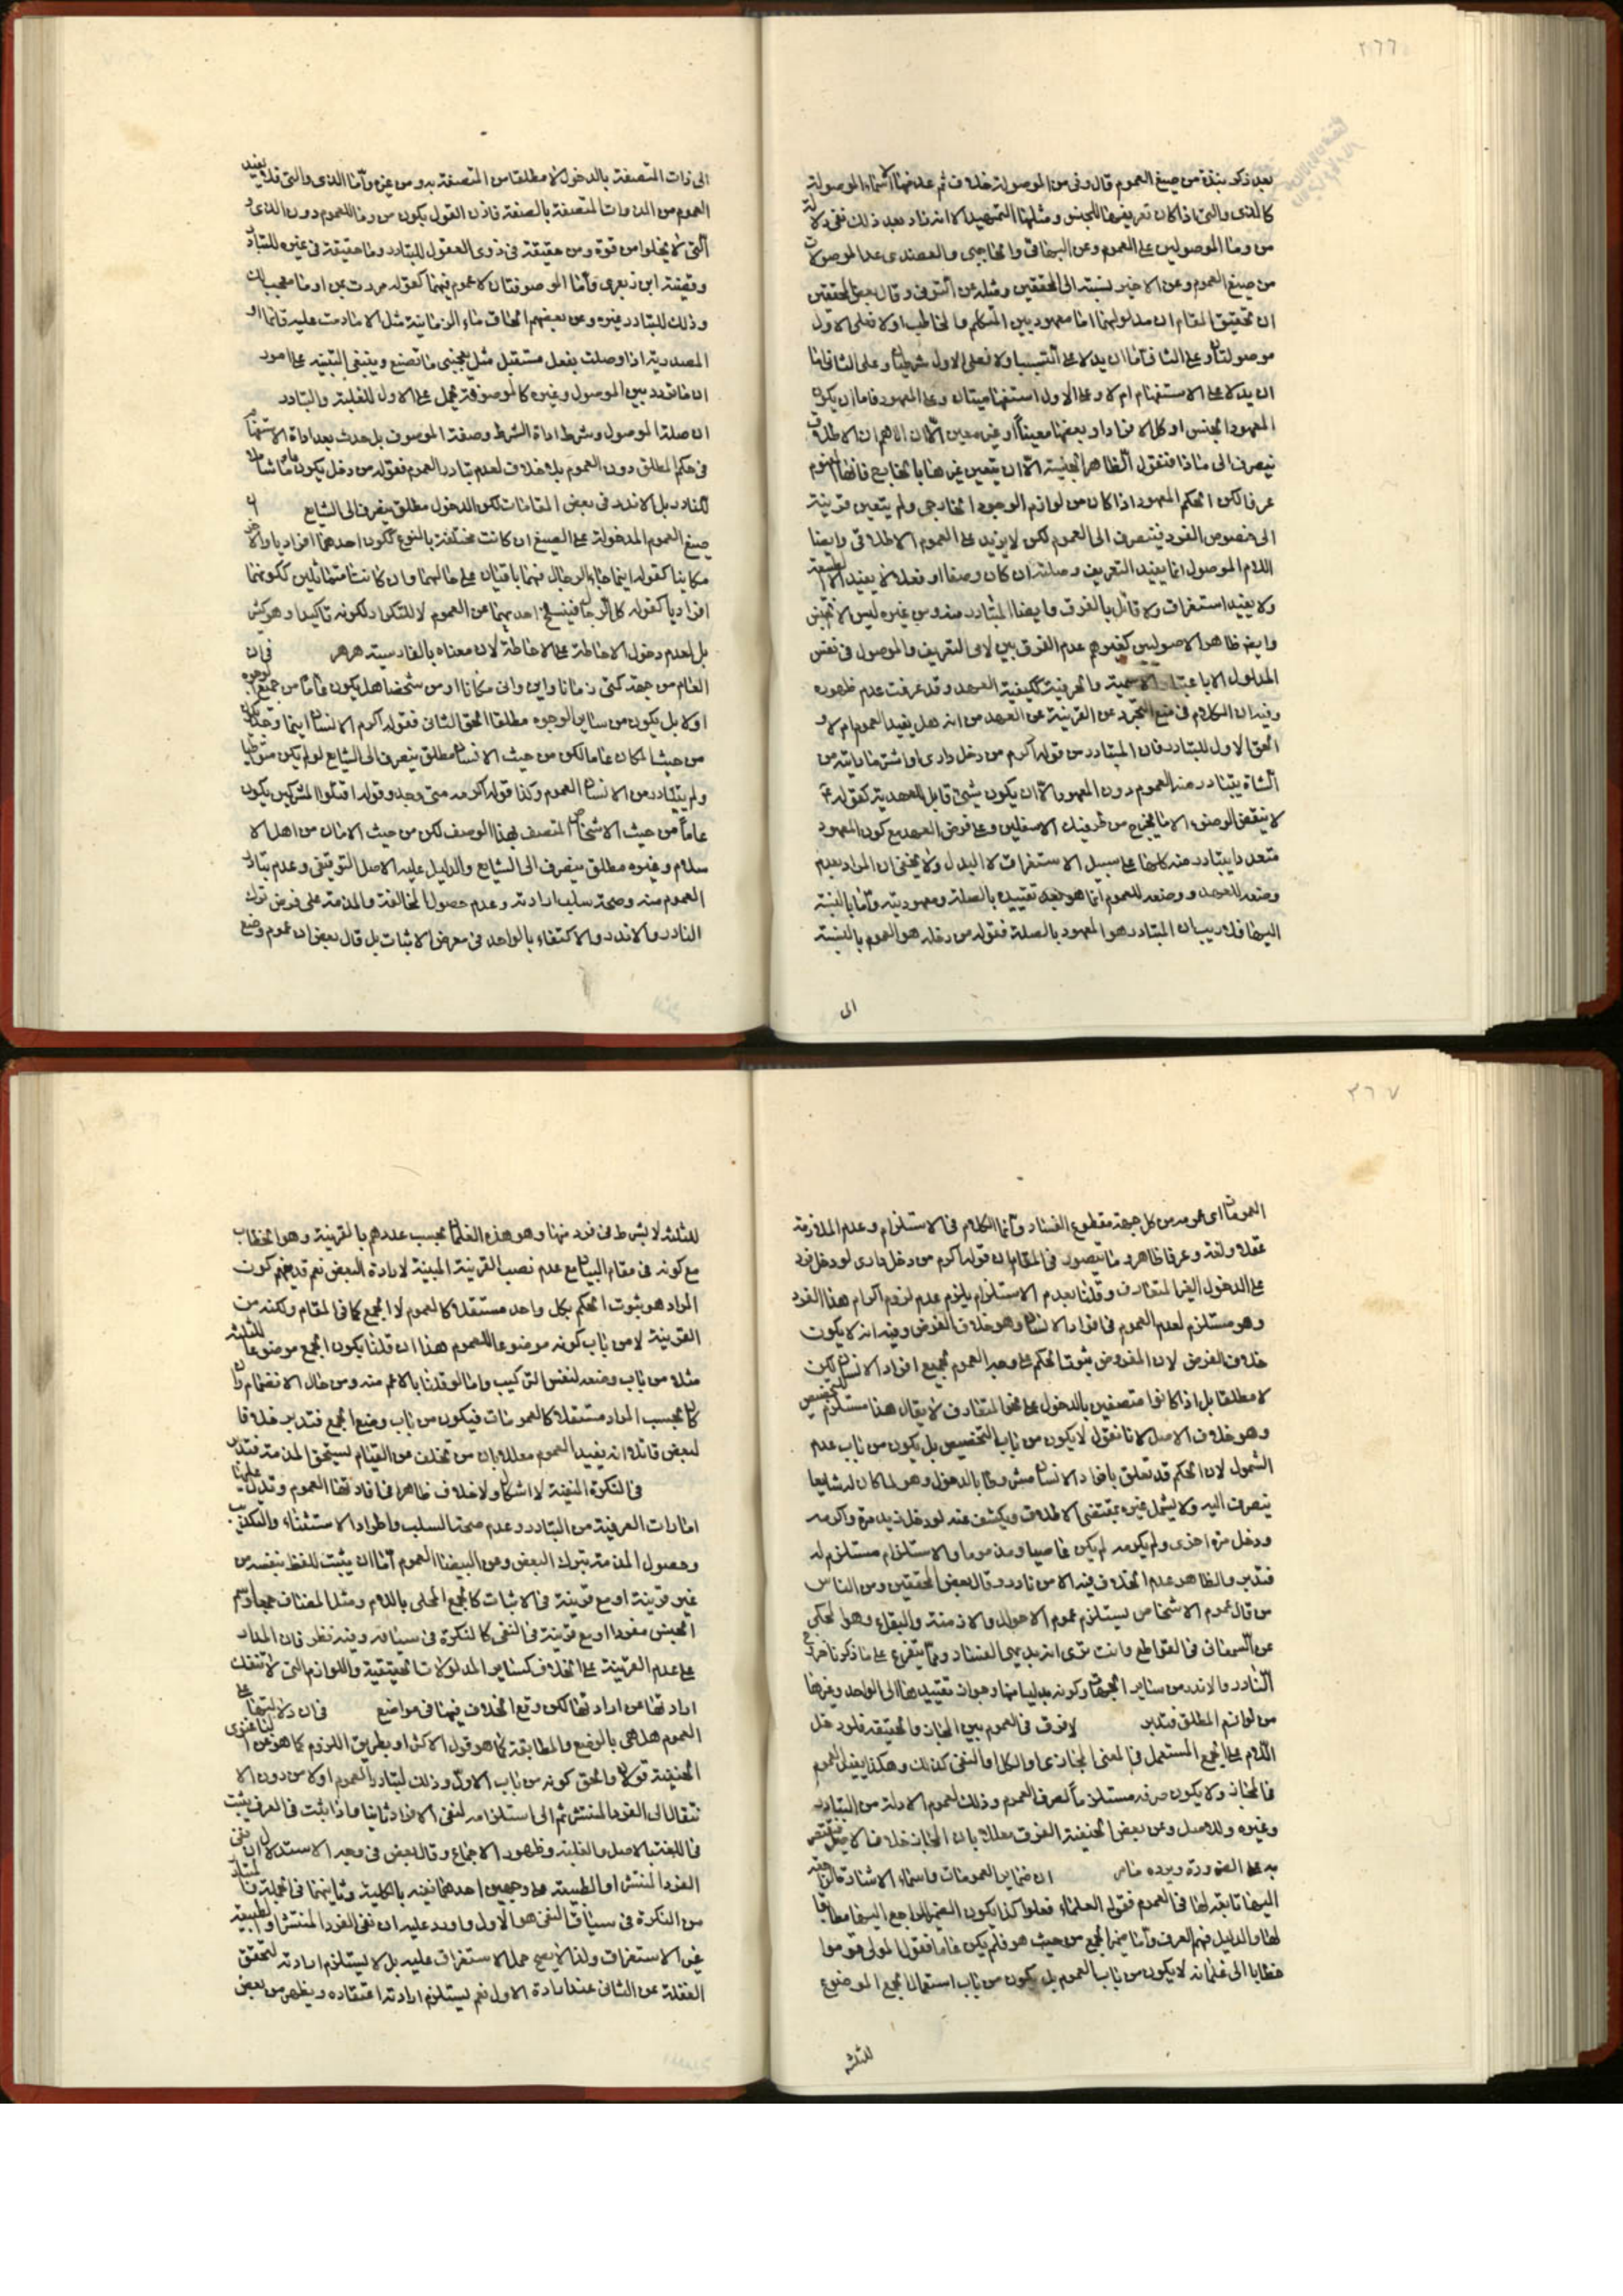 ٢٦٦
بعد ذكر نبذة من صيغ العموم قال وفى من الموصولة خلاف ثم عد منها الاسماء الموصولة
كالذى والتى اذا كان تعريفها للجنس ومثلها التمهيد الا انه زاد بعد ذلك نفى دلالة
من وما الموصولين على العموم وعن البهائى والحاجبى والعضدى عد الموصولات
من صيغ العموم وعن الاخير نسبته الى المحققين ومثله عن التونى وقال بعض المحققين
ان تحقيق المقام ان مدلولهما اما معهود بين المتكلم والمخاطب اولا فعلى الاول
موصولتان وعلى الثانى فاما ان يدلا على التسبب اولا فعلى الاول شرطيتان وعلى الثانى فاما
ان يدلا على الاستفهام ام لا وعلى الاول استفهاميتان وعلى المعهود فاما ان يكون
المعهود الجنس او كل الافراد او بعضها معينا او غير معين الا ان الاهم ان الاطلاق
ينصرف الى ماذا فنقول الظاهر الجنسية الا ان يتعين غيرها بالخارج فانها المفهوم
عرفا لكن الحكم المعهود اذا كان من لوازم الوجود الخارجى ولم يتعين قرينة
الى خصوص الفرد فينصرف الى العموم لكن لا يزيد على العموم الاطلاقى وايضا
اللام الموصول انما يفيد التعريف وصلته ان كان وصفا او فعلا لا يفيد الا الطبيعة
ولا يفيد استغراق ولا قائل بالفرق وايضا المتبادر منه ومن غيره ليس الا الجنس
وايضا ظاهر الاصوليين كغيرهم عدم الفرق بين لامى التعريف والموصول فى نفس
المدلول الا باعتبار الاسمية والحرفية ككيفية العهد وقد عرفت عدم ظهوره
وفيه ان الكلام فى منع التجرد عن القرينة عن العهد من انه هل يفيد العموم ام لا و
الحق الاول للتبادر فان المتبادر من قوله اكرم من دخل دارى او اشتر ما رايته من
الشاة يتبادر منه العموم دون المعهود الا ان يكون شيئ قابل للعهدية كقوله ع
لا ينقض الوضوء الا ما يخرج من طرفيك الاسفلين وعلى فرض العهد مع كون المعهود
متعددا يتبادر منه كلها على سبيل الاستغراق لا البدل ولا يخفى ان المراد بعدم
وضعه للعهد ووضعه للعموم انما هو بعد تقييده بالصلة ومعهوديته واما بالنسبة
اليها فلا ريب ان المتبادر هو المعهود بالصلة فقوله من دخله هو العموم بالنسبة
الى
الى ذات المتصفة بالدخول لا مطلقا من المتصفة به ومن غيره واما الذى والتى فلا يفيد
العموم من الذوات المتصفة بالصفة فاذن القول بكون من وما للعموم دون الذى و
التى لا يخلوا من قوة ومن حقيقة فى ذوى العقول للتبادر وما حقيقة فى غيره للتبادر
وقضية ابن زبعرى واما الموصوفتان لا عموم فيهما كقوله مررت بمن او ما معجب لك
وذلك للتبادر وغيره وعن بعضهم الحاق ماء الزمانية مثل الا ما دمت عليه قائما او
المصدرية اذا وصلت بفعل مستقبل مثل يعجبنى ما تصنع وينبغى التنبيه على امور
ان ما تردد بين الموصول وغيره كالموصوفة يحمل على الاول للغلبة والتبادر
ان صلة الموصول وشرط اداة الشرط وصفة الموصوف بل حدث بعد اداة الاستفهام
فى حكم المطلق دون العموم بلا خلاف لعدم تبادر العموم فقوله من دخل يكون عاما شاملا
للنادر بل الاندر فى بعض المقامات لكن الدخول مطلق ينصرف الى الشايع
صيغ العموم المدخولة على الصيغ ان كانت مختلفة بالنوع ككون احدهما افراديا والاخر
مكانيا كقوله اينما جاء الرجال فهما باقيان على حالهما وان كانتا متماثلين ككونهما
افراديا كقوله كل الرجال فينسلخ احديهما عن العموم لا للتكرار لكونه تاكيدا وهو كثير
بل لعدم دخول الاحاطة على الاحاطة لان معناه بالفارسية هر هر فى ان
العام من جهة كمتى زمانا واين وانى مكانا او من شخصا هل يكون عاما من جميع الوجوه
اولا بل يكون من ساير الوجوه مطلقا الحق الثانى فقوله اكرم الانسان اينما وجد يكون
من حيث المكان عاما لكن من حيث الانسان مطلق ينصرف الى الشايع لو لم يكن متواطيا
ولم يتبادر من الانسان العموم وكذا قوله اكرمه متى وجد وقوله اقتلوا المشركين يكون
عاما من حيث الاشخاص المتصف بهذا الوصف لكن من حيث الامان من اهل الا
سلام وغيره مطلق ينصرف الى الشايع والدليل عليه الاصل التوقيفى وعدم تبادر
العموم منه وصحة سلب ارادته وعدم حصول المخالفة والمذمة على فرض ترك
النادر والاندر والاكتفاء بالواحد فى معرض الاثبات بل قال بعض ان عموم وضع
٢٦٧
العمومات اى عمومه من كل جهة مقطوع الفساد وانما الكلام فى الاستلزام وعدم الملازمة
عقلا ولغة وعرفا ظاهر وما يتصور فى المقام ان قوله اكرم من دخل دارى لو دخل فرد
على الدخول الغير المتعارف وقلنا بعدم الاستلزام يلزم عدم لزوم اكرام هذا الفرد
وهو مستلزم لعدم العموم فى افراد الانسان وهو خلاف الفرض وفيه انه لا يكون
خلاف الفرض لان المفروض ثبوت الحكم على وجه العموم لجميع افراد الانسان لكن
لا مطلقا بل اذا كانوا متصفين بالدخول على نحو المتعارف لا يقال هذا مستلزم للتخصيص
وهو خلاف الاصل لانا نقول لا يكون من باب التخصيص بل يكون من باب عدم
الشمول لان الحكم قد تعلق بافراد الانسان مشروطا بالدخول وهو لما كان له شايعا
ينصرف اليه ولا يشمل غيره بمقتضى الاطلاق ويكشف عنه لو دخل زيد مرة واكرمه
ودخل مرة اخرى ولم يكرمه لم يكن عاصيا ومذموما والاستلزام مستلزم له
فتدبر والظاهر عدم الخلاف فيه الا من نادر وقال بعض المحققين ومن الناس
من قال عموم الاشخاص يستلزم عموم الاحوال والازمنة والبقاع وهو المحكى
عن السمعانى فى القواطع وانت ترى انه بديهى الفساد ومما يتفرع على ما ذكرنا خراج
النادر والاندر من ساير الجهات وكونه بدليا منها وجواز تقييدها الى الواحد وغيرها
من لوازم المطلق فتدبر لا فرق فى العموم بين المجاز والحقيقة فلو دخل
اللام على الجمع المستعمل فى المعنى المجازى او الكل او النفى كذلك وهكذا يفيد العموم
فالمجاز ولا يكون صرفه مستلزما لصرف العموم وذلك لعموم الادلة من التبادر
وغيره وللاصل وعن بعض الحنفية الفرق معللا بان المجاز خلاف الاصل فيقتصر
به على الضرورة ويرده مامر ان ضماير العمومات واسماء الاشارة الراجعة
اليها تابعة لها فى العموم فقوله العلماء فعلوا كذا يكون الضمير الراجع اليها مطابقا
لها والدليل فهم العرف واما ضمير الجمع من حيث هو فلم يكن عاما فقول المولى قوموا
خطابا الى غلمانه لا يكون من باب العموم بل يكون من باب استعمال الجمع الموضوع
للثلثه
للثلثة لا بشرط فى فرد منها وهو هذه الغلمان بحسب عددهم بالقرينة وهو الخطاب
مع كونه فى مقام البيان مع عدم نصب القرينة المبينة لارادة البعض نعم قد يفهم كون
المراد هو ثبوت الحكم بكل واحد مستقلا كالعموم لا الجمع كما فى المقام ولكنه من
القرينة لا من باب كونه موضوعا للعموم هذا ان قلنا بكون الجمع موضوعا للثلثة
مثلا من باب وضعه لنفس التركيب واما لو قلنا بالاعم منه ومن حال الانضمام وان
كان بحسب المراد مستقلا كالعمومات فيكون من باب وضع الجمع فتدبر خلافا
لبعض قائلا انه يفيد العموم معللا بان من تخلف من القيام يستحق المذمة فتدبر
فى النكرة المنفية لا اشكال ولا خلاف ظاهرا فى افادتها العموم وتدل عليها
امارات العرفية من التبادر وعدم صحة السلب واطراد الاستثناء والتكذيب
وحصول المذمة بترك البعض وعن البيضا العموم اما ان يثبت للفظ بنفسه من
غير قرينة او مع قرينة فى الاثبات كالجمع المحلى باللام ومثل المضاف جمعا واسم
الجنس مفردا او مع قرينة فى النفى كالنكرة فى سياقه وفيه نظر فان المدار
على عدم القرينة على الخلاف كساير المدلولات الحقيقية واللوازم التى لا تنفك
ارادتها من ارادتها لكن وقع الخلاف فيها فى مواضع فى ان دلالتها على
العموم هل هى بالوضع والمطابقة كما هو قول الاكثر او بطريق اللزوم كما هو عن
الحنفية قولان والحق كونه من باب الاول وذلك لتبادر العموم اولا من دون الا
نتقال الى الفرد المنتشر ثم الى استلزامه لنفى الافراد ثانيا واذا ثبت فى العرف يثبت
فى اللغة بالاصل والغلبة وظهور الاجماع وقال بعض فى وجه الاستدلال ان نفى
الفرد المنتشر او الطبيعة على وجهين احدهما نفيه بالكلية وثانيهما فى الجملة
من النكرة فى سياق النفى هو الاول واورد عليه ان نفى الفرد المنتشر او الطبيعة
غير الاستغراق ولذا لا يصح حمل الاستغراق عليه بل لا يستلزم ارادته لتحقق
الغفلة عن الثانى عند ارادة الاول نعم يستلزم ارادته اعتقاده ويظهر من بعض